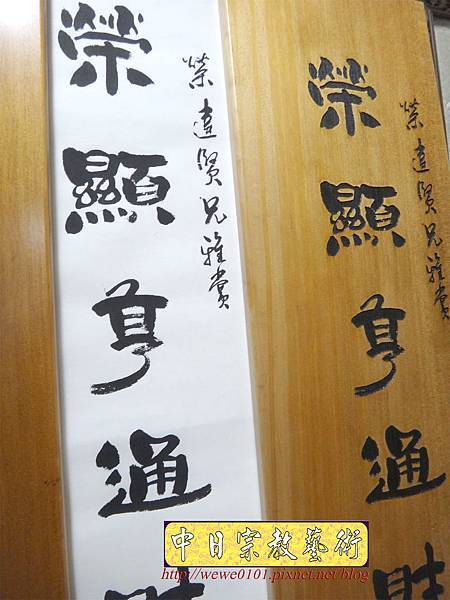 榮達賢兄雅賞
榮顯亨通財
榮達賢兄雅賞
榮顯亨通財
中日宗教藝術
http://wewe0101.pixnet.net/blog